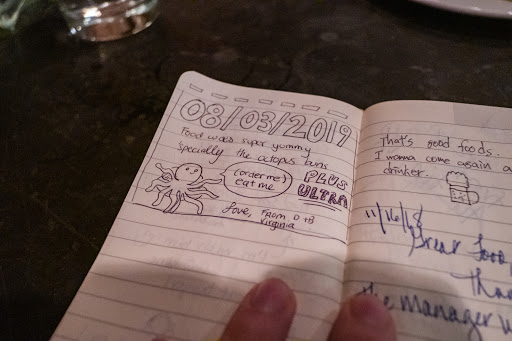 08/03/2019
Food was super yummy
Specially the octopus buns
(order me)
eat me
PLUS
ULTRA
Love, From D+B
Virginia
That's good foods.
I wanna come again a
drinker.
11/16/18
Great food,
the manager w